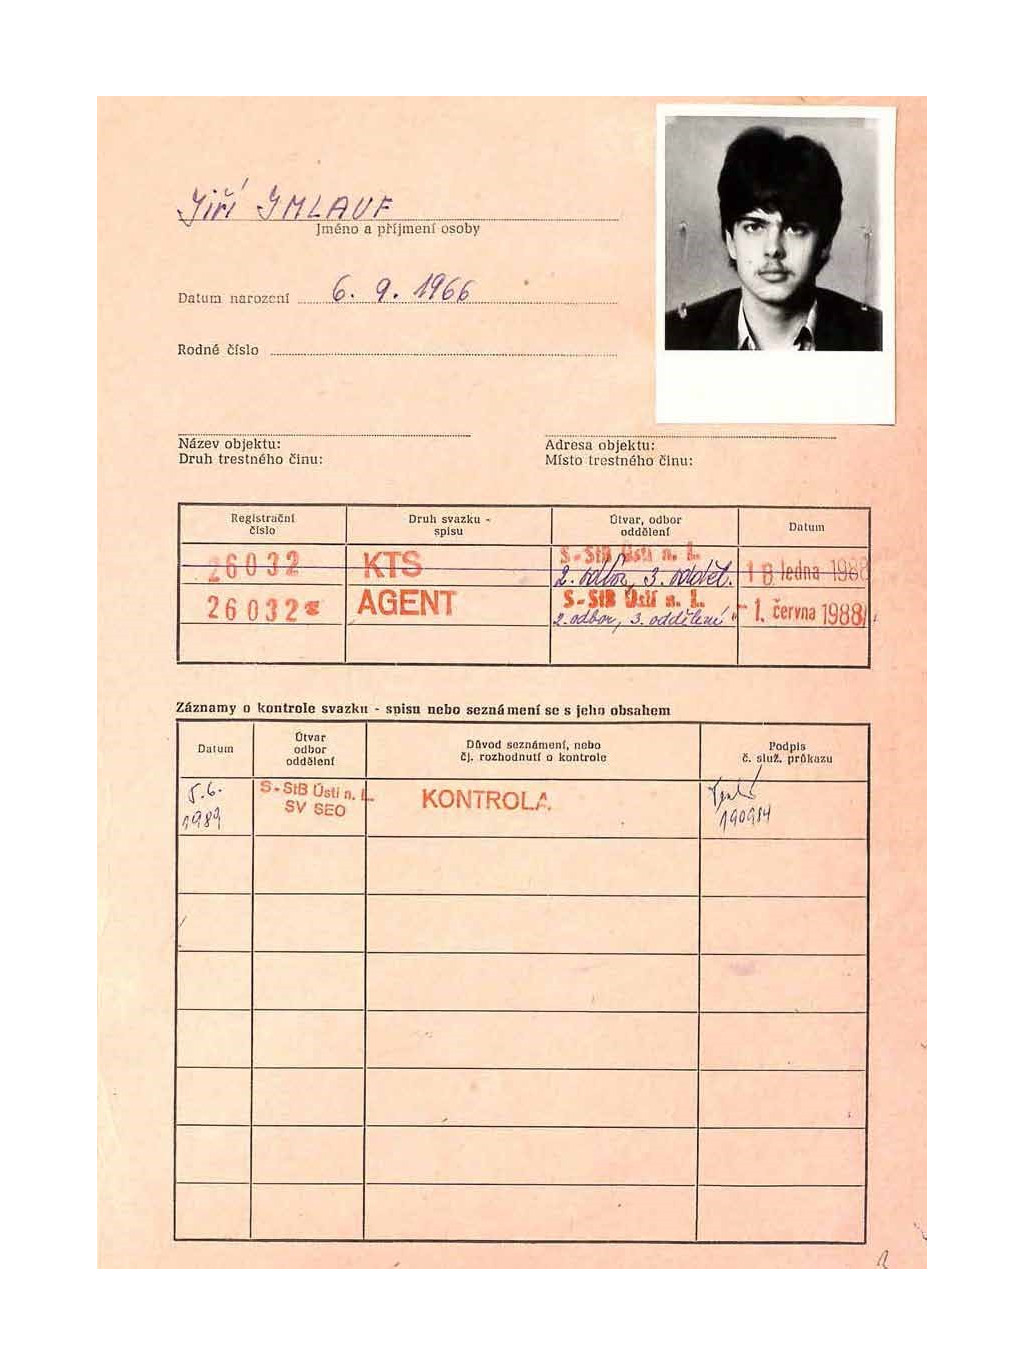 Jiří IMLAUF
Jméno a příjmení osoby
Datum narození 6. 9. 1966
Rodné číslo
Název objektu:
Druh trestného činu:
Adresa objektu:
Místo trestného činu:
Registrační číslo
Druh svazku - spisu
Útvar, odbor oddělení
Datum
26032 KTS S-StB Ústí n. L. 2. odbor, 3. odděl. 18. ledna 1988
26032 AGENT S-StB Ústí n. L. 2. odbor, 3. oddělení - 1. června 1988
Záznamy o kontrole svazku - spisu nebo seznámení se s jeho obsahem
Datum
Útvar odbor oddělení
Důvod seznámení, nebo čj. rozhodnutí o kontrole
Podpis č. služ. průkazu
5.6. 1989 S-StB Ústí n. L. SV SEO KONTROLA